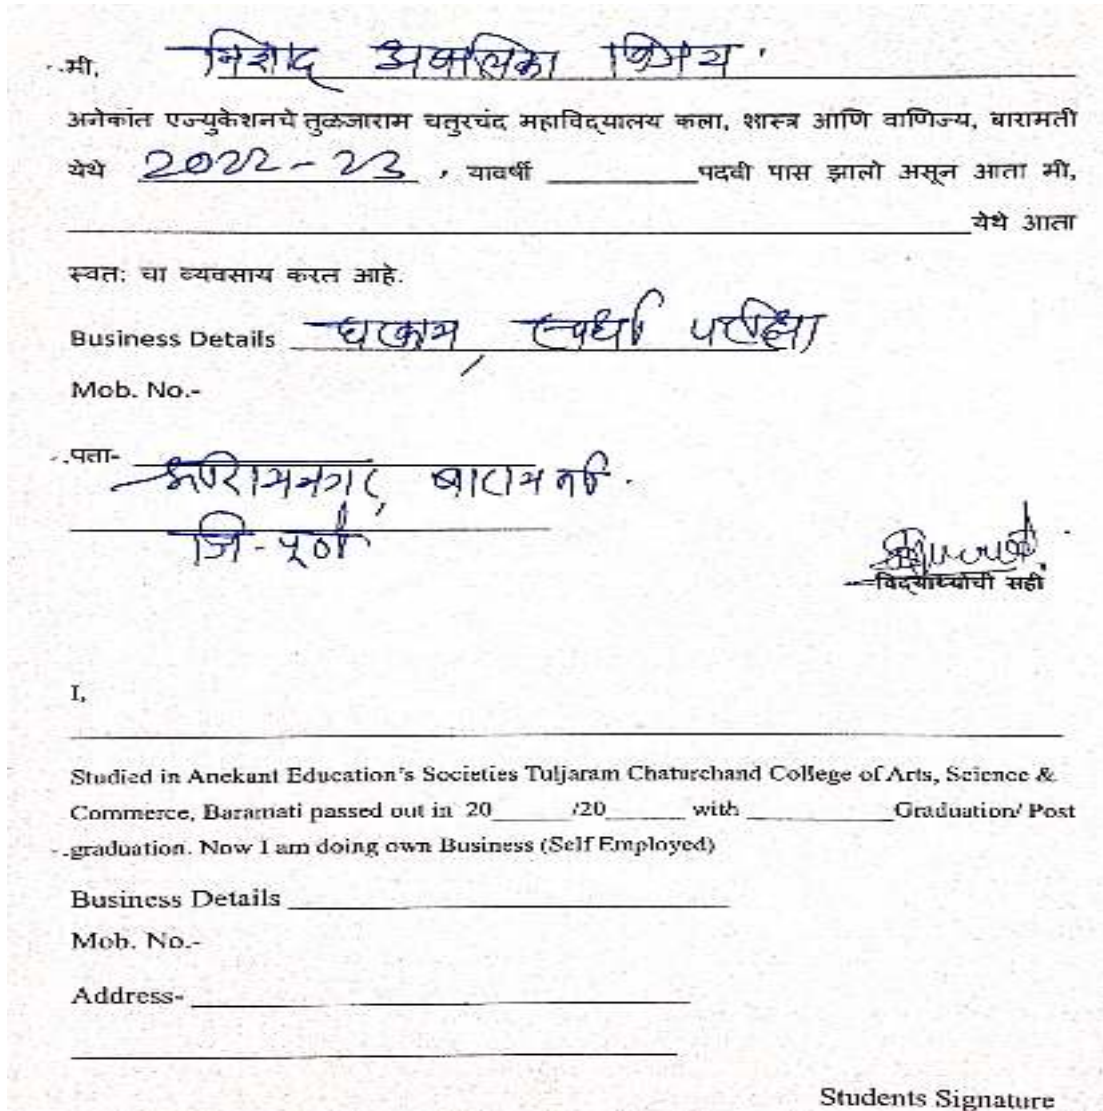 मी, निशाद अंबालिका विजय.
अनेकांत एज्युकेशनचे तुळजाराम चतुरचंद महाविद्यालय कला, शास्त्र आणि वाणिज्य, बारामती
येथे 2022-23, यावर्षी ________ पदवी पास झालो असून आता मी,
येथे आता
स्वतः चा व्यवसाय करत आहे.
Business Details घरकाम, स्पर्धा परीक्षा
Mob. No.-
पता-
बारामती.
जि-पूणे
विद्यार्थ्याची सही
I,
Studied in Anekant Education's Societies Tuljaram Chaturchand College of Arts, Science &
Commerce, Baramati passed out in 20______/20______ with ________Graduation/ Post
graduation. Now I am doing own Business (Self Employed)
Business Details
Mob. No.-
Address-
Students Signature